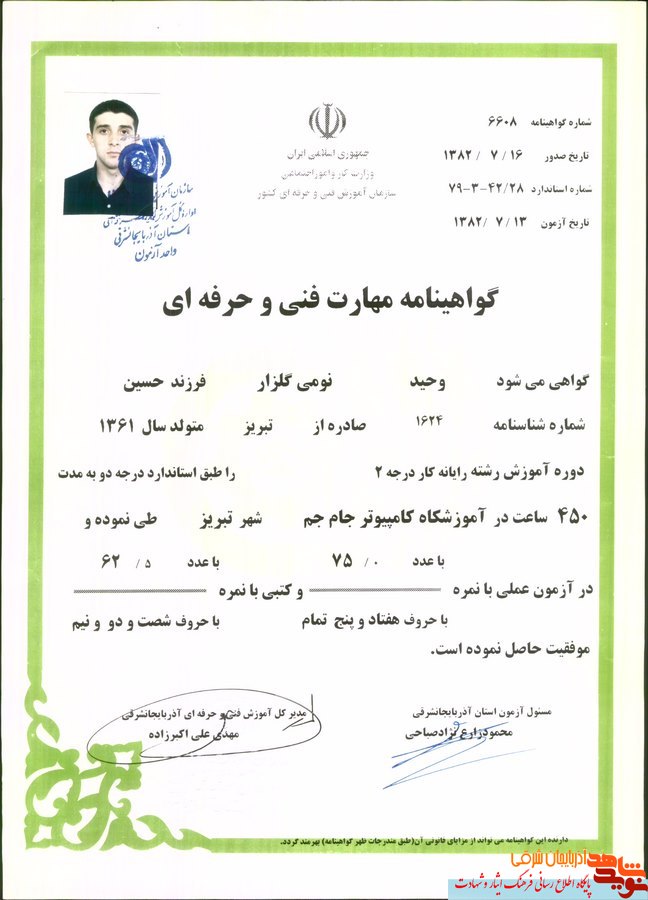 شماره گواهینامه ۶۶۰۸
تاریخ صدور ۱۳۸۲/ ۷ / ۱۶
شماره استاندارد ۷۹-۳-۴۲/۲۸
تاریخ آزمون ۱۳۸۲/ ۷ / ۱۳
جمهوری اسلامی ایران
وزارت کار و امور اجتماعی
سازمان آموزش فنی و حرفه ای کشور
سازمان آموزش
استان آذربایجانشرقی
واحد آزمون
گواهینامه مهارت فنی و حرفه ای
گواهی می شود وحید نومی گلزار فرزند حسین
شماره شناسنامه ۱۶۲۴ صادره از تبریز متولد سال ۱۳۶۱
دوره آموزش رشته رایانه کار درجه ۲ را طبق استاندارد درجه دو به مدت
۴۵۰ ساعت در آموزشگاه کامپیوتر جام جم شهر تبریز طی نموده و
با عدد ۷۵ / ۰ با عدد ۶۲ / ۵
در آزمون عملی با نمره و کتبی با نمره
با حروف هفتاد و پنج تمام با حروف شصت و دو و نیم
موفقیت حاصل نموده است.
مسئول آزمون استان آذربایجانشرقی
محمود زارع نژاد صباحی
مدیر کل آموزش فنی و حرفه ای آذربایجانشرقی
مهدی علی اکبرزاده
دارنده این گواهینامه می تواند از مزایای قانونی آن(طبق مندرجات ظهر گواهینامه) بهرمند گردد.
نوید شاهد آذربایجان شرقی
پایگاه اطلاع رسانی فرهنگ ایثار و شهادت